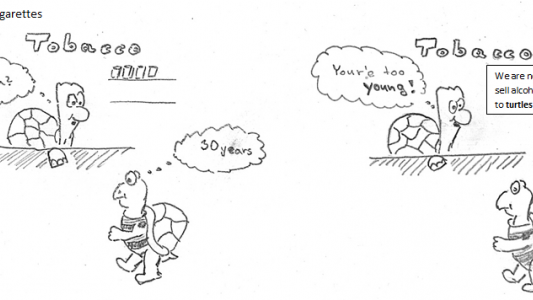 garettes
Tobacco
?
30 years
Tobacco
Your'e too
young!
We are n
sell alcoh
to turtles